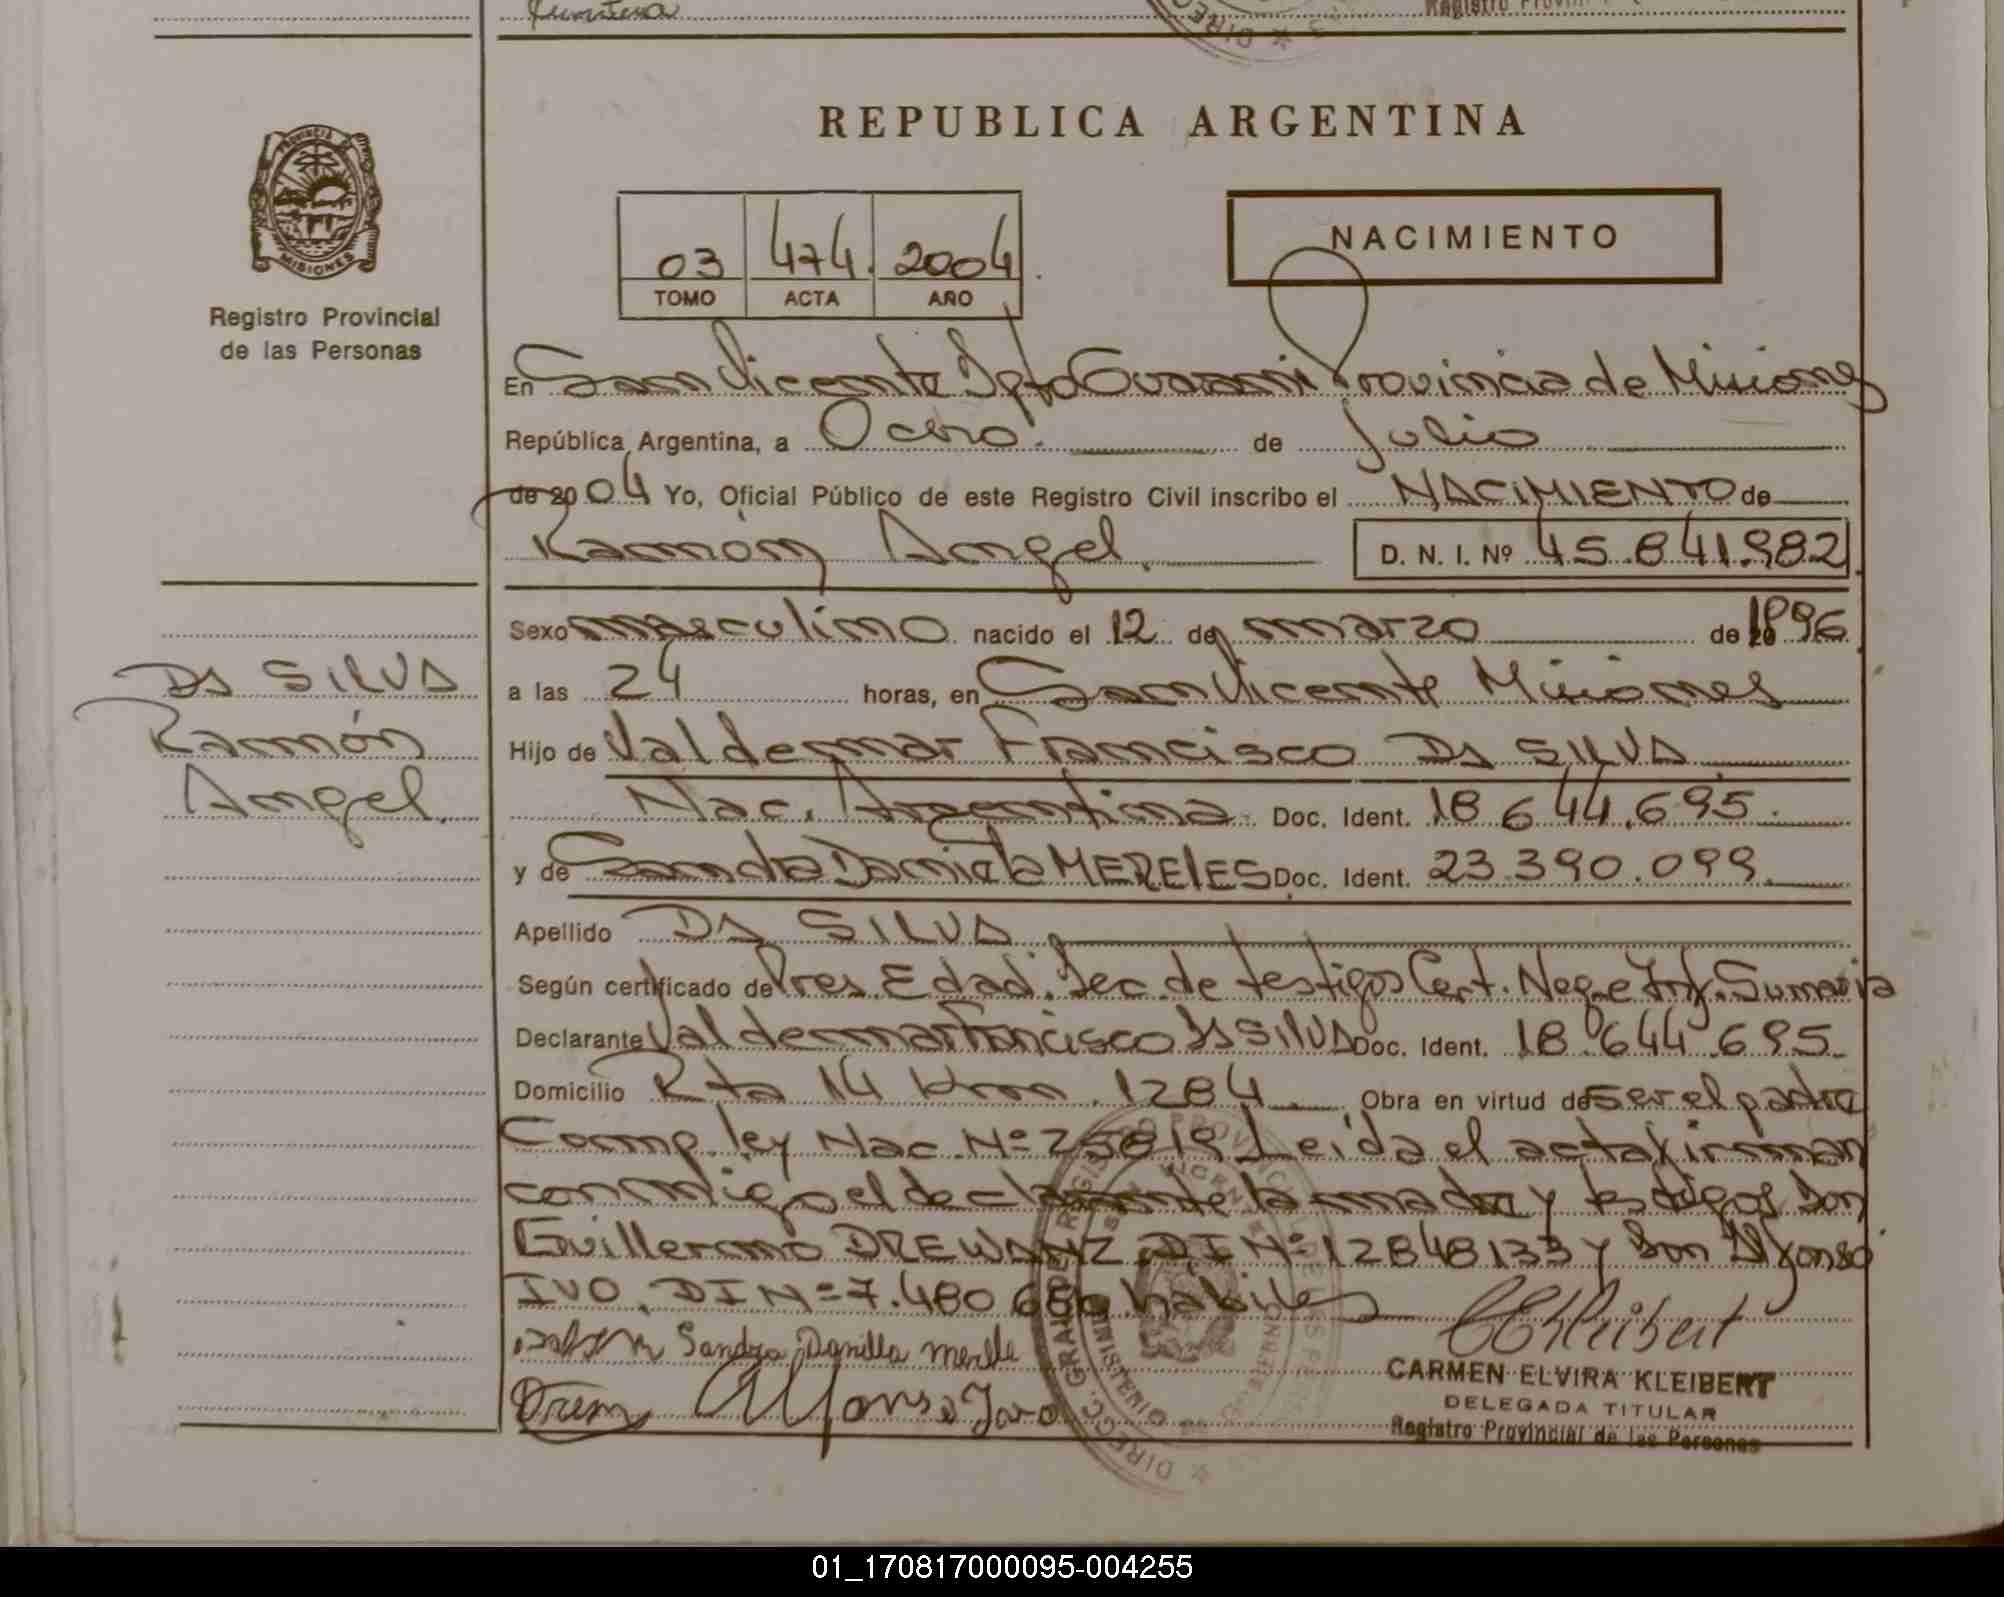 REPUBLICA ARGENTINA
PROVINCIA
MISIONES
Registro Provincial
de las Personas
03 474 2004
TOMO ACTA AÑO
NACIMIENTO
En San Vicente Dpto Guarani Provincia de Misiones
República Argentina, a Ocho de Julio
de 2004 Yo, Oficial Público de este Registro Civil inscribo el NACIMIENTO de
Ramón Angel D. N. I. Nº 45.841.982
Sexo masculino nacido el 12 de marzo de 1996
DA SILVA
Ramón
Angel
a las 24 horas, en San Vicente Misiones
Hijo de Valdemar Francisco DA SILVA
Nac. Argentina Doc. Ident. 18 644.695
y de Sandra Daniela MERELES Doc. Ident. 23.390.099
Apellido DA SILVA
Según certificado de Pres. Edad. Dec. de testigos Cert. Neg. e Inf. Sumaria
Declarante Valdemar Francisco DA SILVA Doc. Ident. 18.644.695
Domicilio Rta 14 Km. 1284 Obra en virtud de ser el padre
Comp. ley Nac. Nº 25819 Leida el acta firman
conmigo el declarante la madre y testigos Don
Guillermo DREWANZ DI Nº 12848133 y Don Alfonso
IVO. DI Nº 7.480 686 habiles
Sandra Danilla merele
Alfonso Ivo
CARMEN ELVIRA KLEIBERT
DELEGADA TITULAR
Registro Provincial de las Personas
01_170817000095-004255